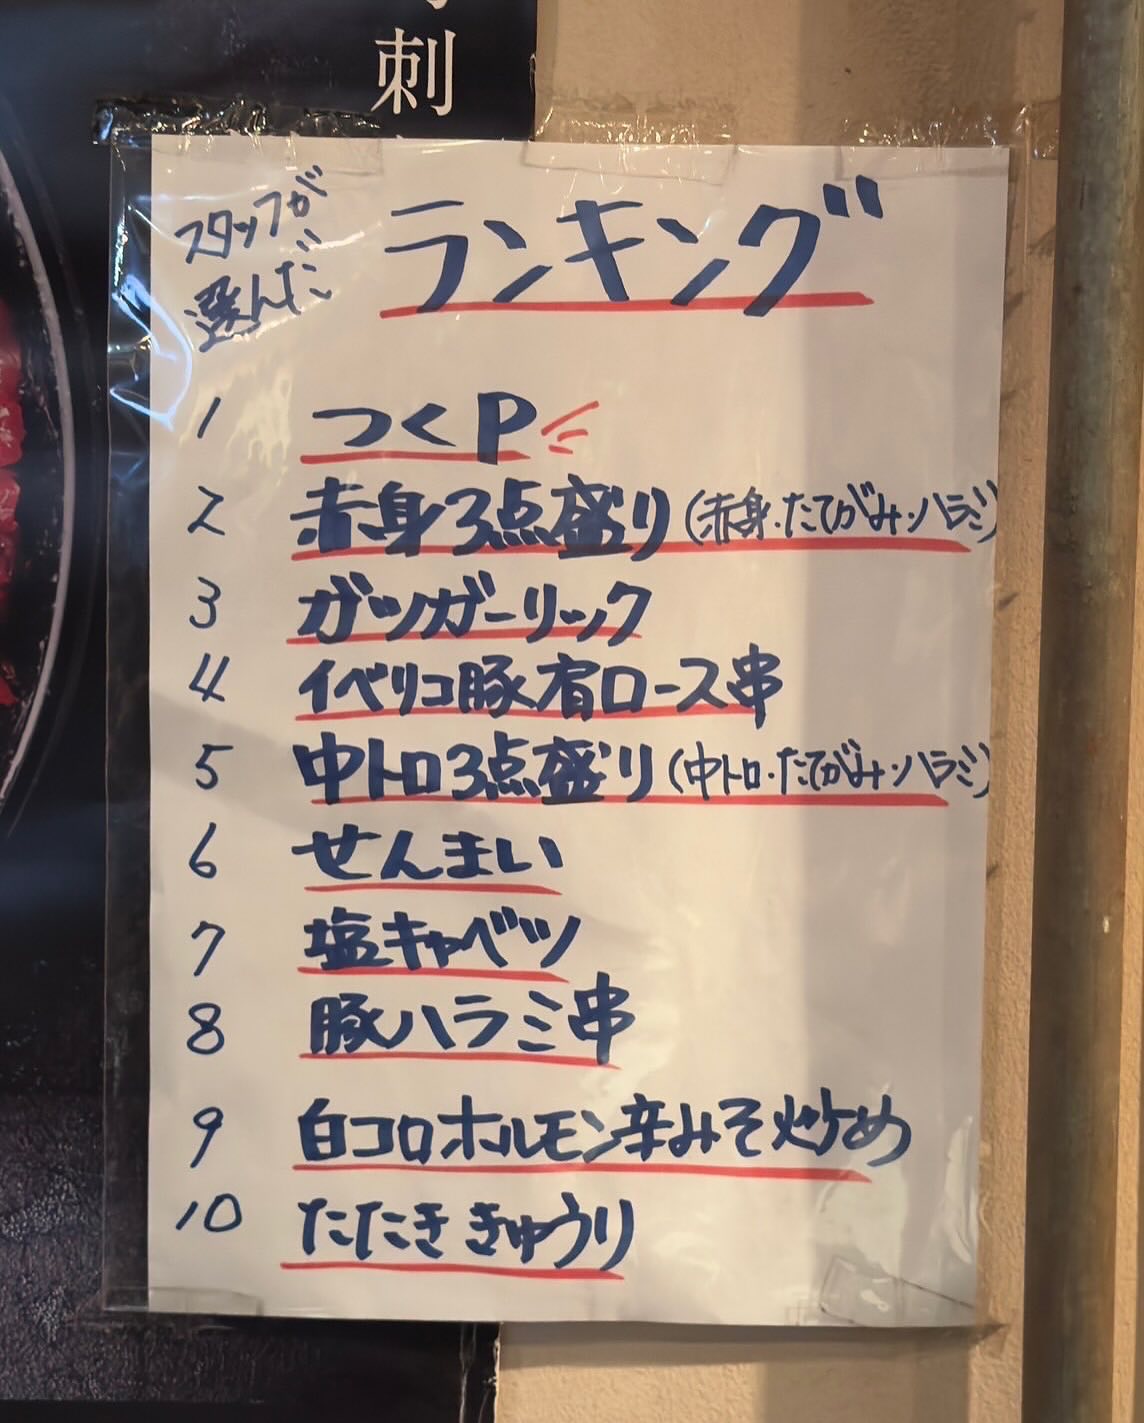 刺
スタッフが
選んだ
ランキング
1 つくP
2 赤身3点盛り(赤身・たてがみ・ハラミ)
3 ガツガーリック
4 イベリコ豚肩ロース串
5 中トロ3点盛り(中トロ・たてがみ・ハラミ)
6 せんまい
7 塩キャベツ
8 豚ハラミ串
9 白コロホルモン辛みそ炒め
10 たたききゅうり